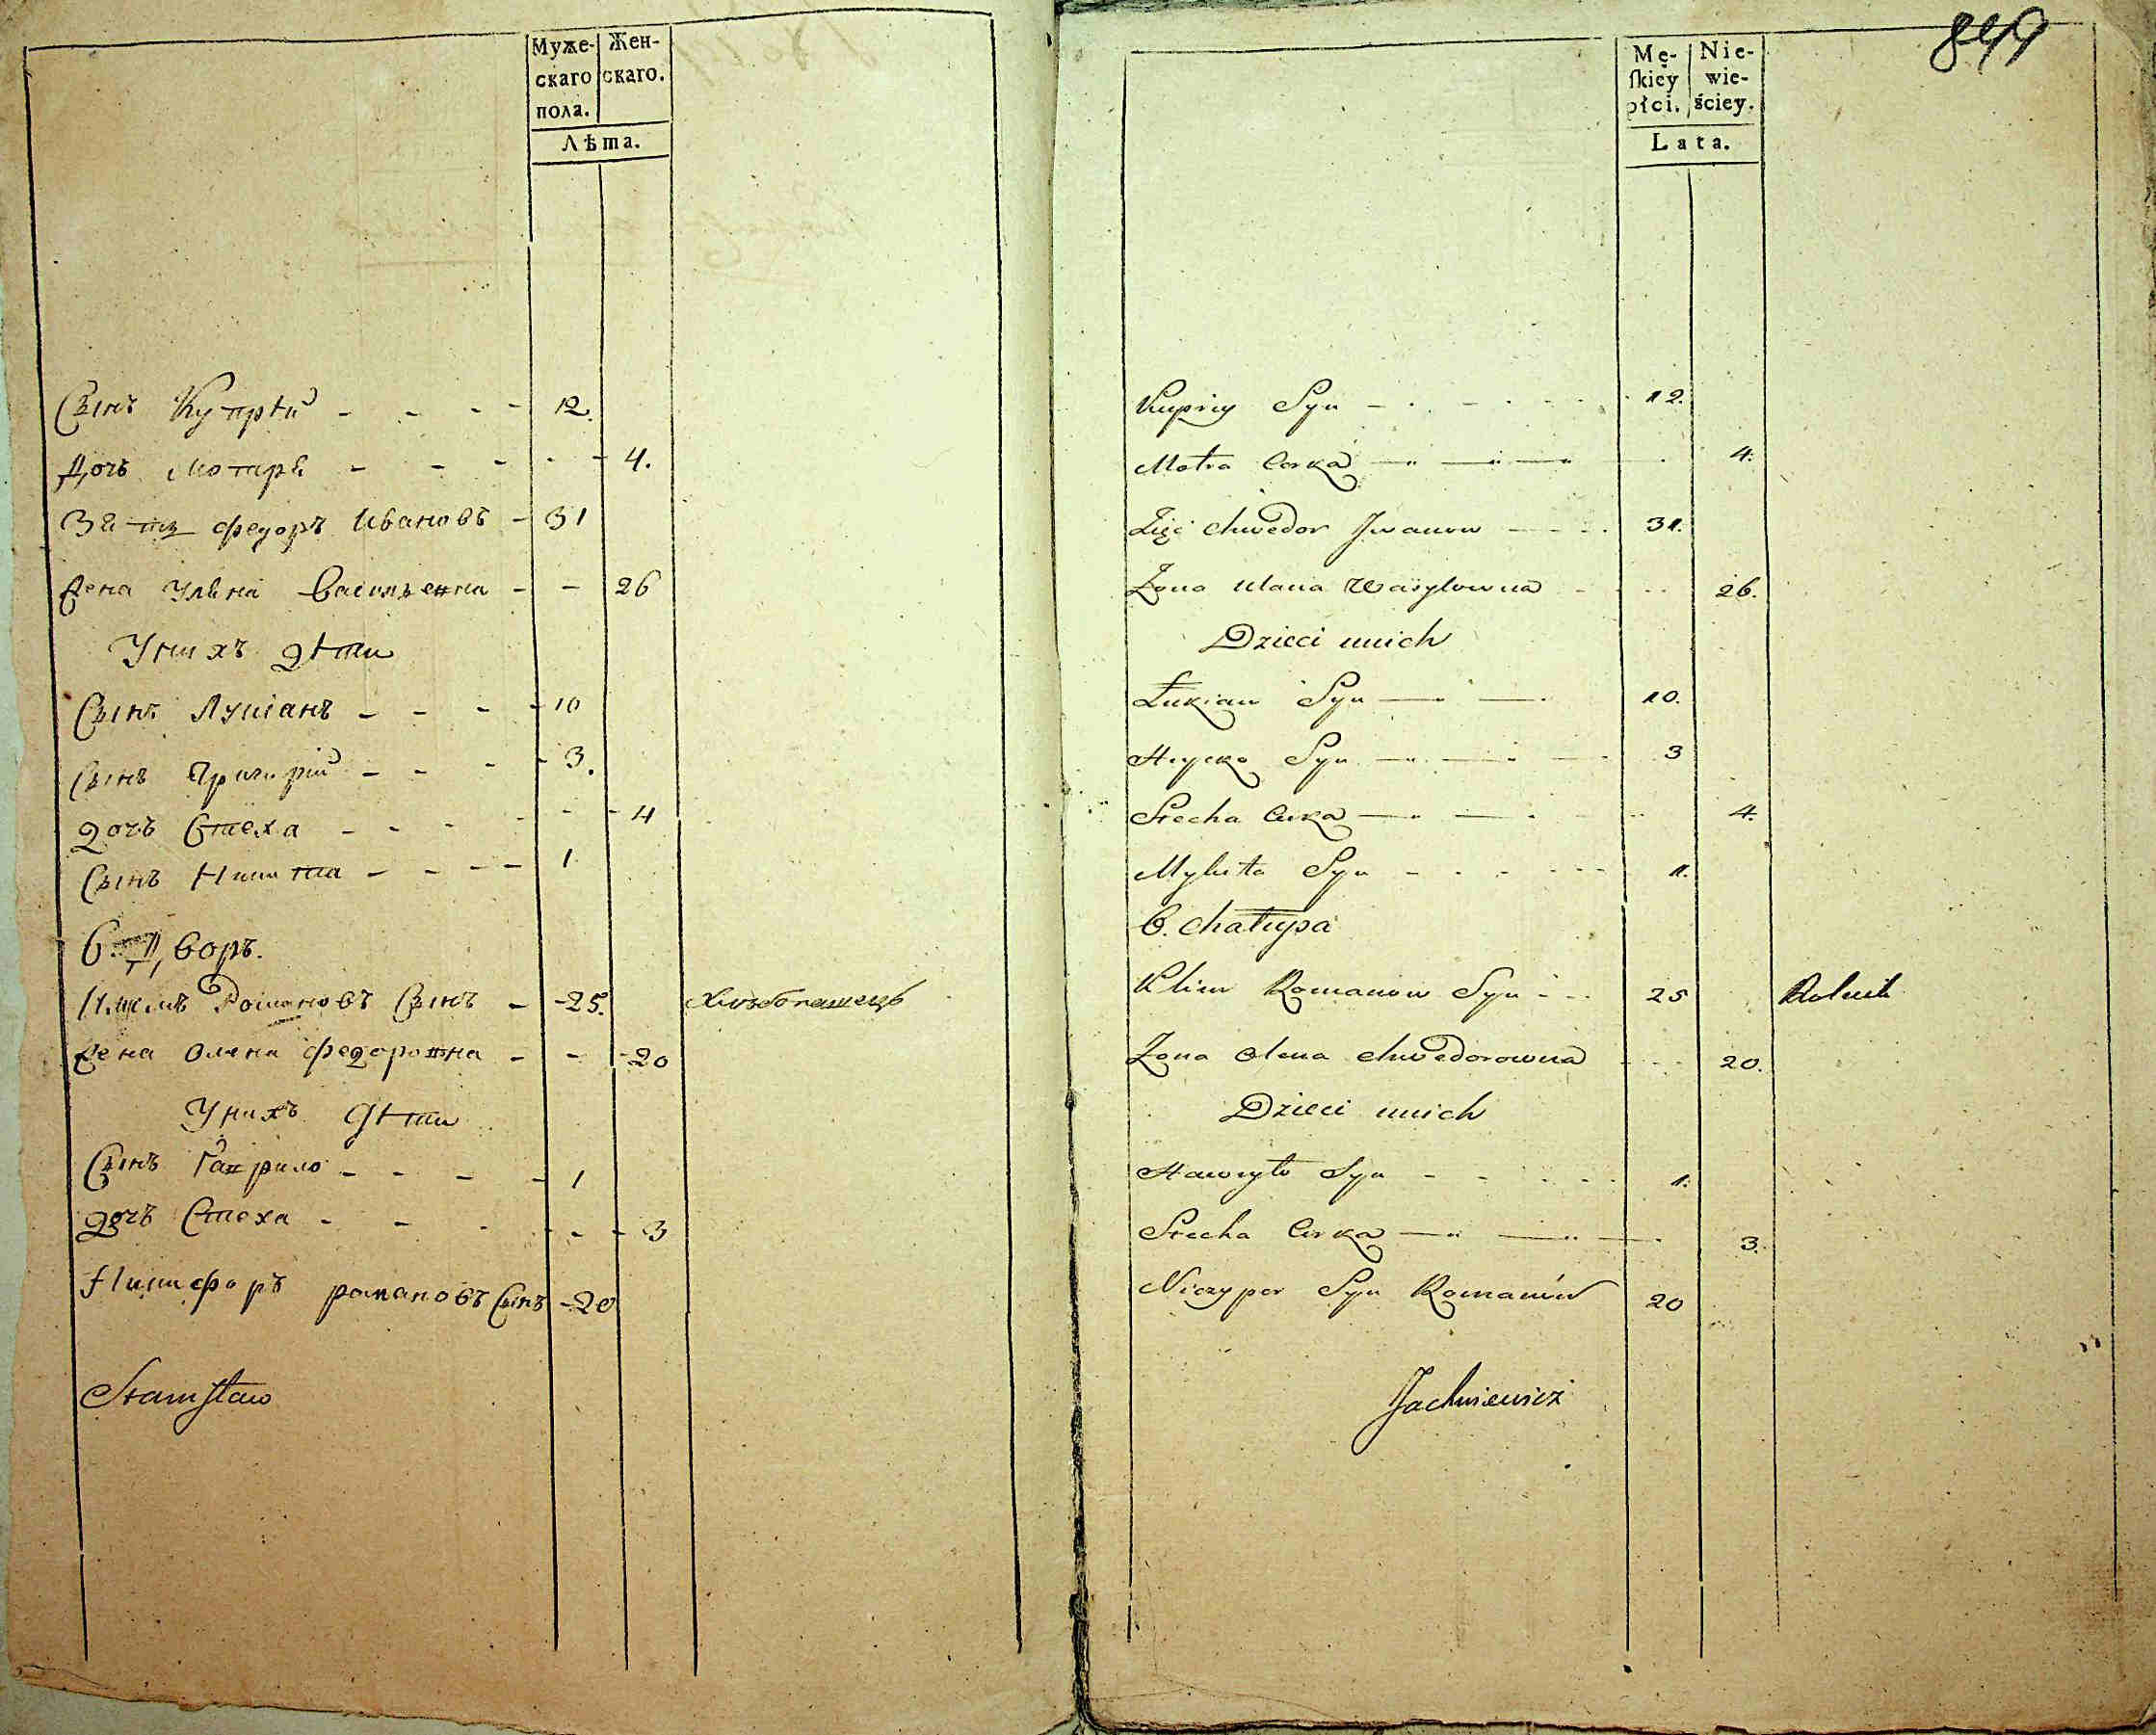 Муже-
скаго
пола.
Жен-
скаго.
Лѣта.
Сынъ Купрѣй - - - - 12.
Дочъ Мотаря - - - - - 4.
Зять федоръ Ивановъ - 31
Жена Уляна Васильевна - - 26
У нихъ дѣти
Сынъ Лукіанъ - - - - 10
Сынъ Григорій - - - - 3.
дочъ Стеха - - - - - - 4
Сынъ Никита - - - - 1
6. Дворъ.
Климъ Романовъ Сынъ - - 25. Хлѣбопашецъ
Жена Олена федоровна - - - 20
У нихъ дѣти
Сынъ Гаврило - - - - 1
дочъ Стеха - - - - - - 3
Никифоръ романовъ Сынъ - 20
Stanisław
844
Mę-
skiey
płci.
Nie-
wie-
ściey.
Lata.
Kupriy Syn 12.
Motra Corka 4.
Zięć Chwedor Jwanow 31.
Żona Ulana Wasylowna 26.
Dzieci unich
Łukian Syn 10.
Hrycko Syn 3
Stecha Curka 4.
Mykita Syn 1.
6. Chałupa
Klim Romanow Syn 25 Rolnik
Żona Olena Chwedorowna 20.
Dzieci unich
Hawryło Syn 1.
Stecha Corka 3.
Niczypor Syn Romanów 20
Jachniewicz